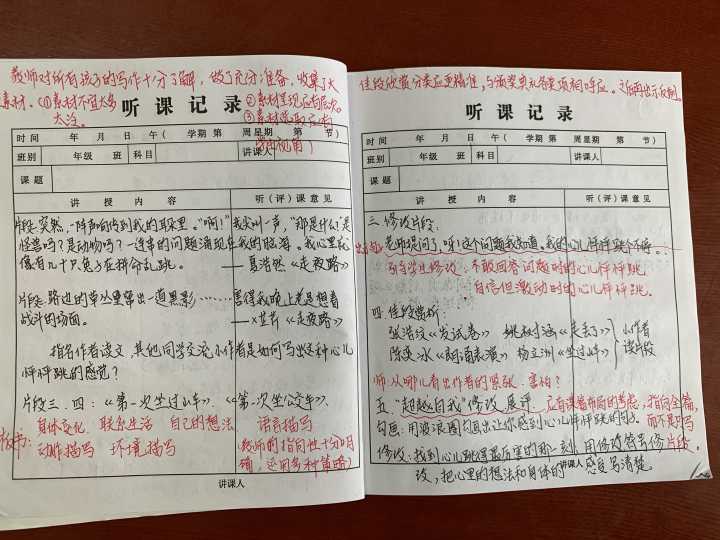 教师对所有孩子的写作十分了解，做了充分准备，收集了大
素材。①素材不宜太多
太泛。
②素材呈现应有层次
③素材选取应有
听课记录
时间 年 月 日 午( 学期 第 周星期 第 节)
班别 年级 班 科目 讲课人
课题
讲授内容 听(评)课意见
片段一：突然，一阵声响传到我的耳朵里。“啊！”我尖叫一声，“那是什么！是
怪兽吗？是动物吗？一连串的问题涌现在我的脑海。我心里就
像有几十只兔子在拼命乱跳。 ——夏浩然《走夜路》
片段二：路边的草丛里窜出一道黑影……害得我晚上老是想着
战斗的场面。 《走夜路》
指名作者读文，其他同学交流小作者是如何写出这种心儿
怦怦跳的感觉？
片段三、四：《第一次坐过山车》、《第一次坐公交车》
身体变化 联系生活 自己的想法 语言描写
板书：动作描写 环境描写
(教师的指向性十分明
确，运用多种策略)
讲课人
佳段欣赏分类应更精准，与颁奖典礼各奖项相呼应。之后再出示反例。
听课记录
时间 年 月 日 午( 学期 第 周星期 第 节)
班别 年级 班 科目 讲课人
课题
讲授内容 听(评)课意见
三、修改片段：
老师提问了，呀！这个问题我知道。我的心儿怦怦跳个不停。
引导学生修改：不敢回答问题时的心儿怦怦跳
自信但激动时的心儿怦怦跳。
四、佳段赏析：
张浩纹《发试卷》 姚秋涵《走丢了》 小作者
陈奕冰《朗诵表演》 杨立洲《坐过山车》 读片段
师：从哪儿看出作者的紧张、害怕？
五、“超越自我”修改展评
应有谋篇布局的考虑，指向全篇，
而不是只写
片段。
勾画：用波浪圈勾画出让你感到心儿怦怦跳的句子
修改：找到心儿跳得最厉害的那一刻，用修改符号修
改，把心里的想法和身体的感受写清楚。
讲课人